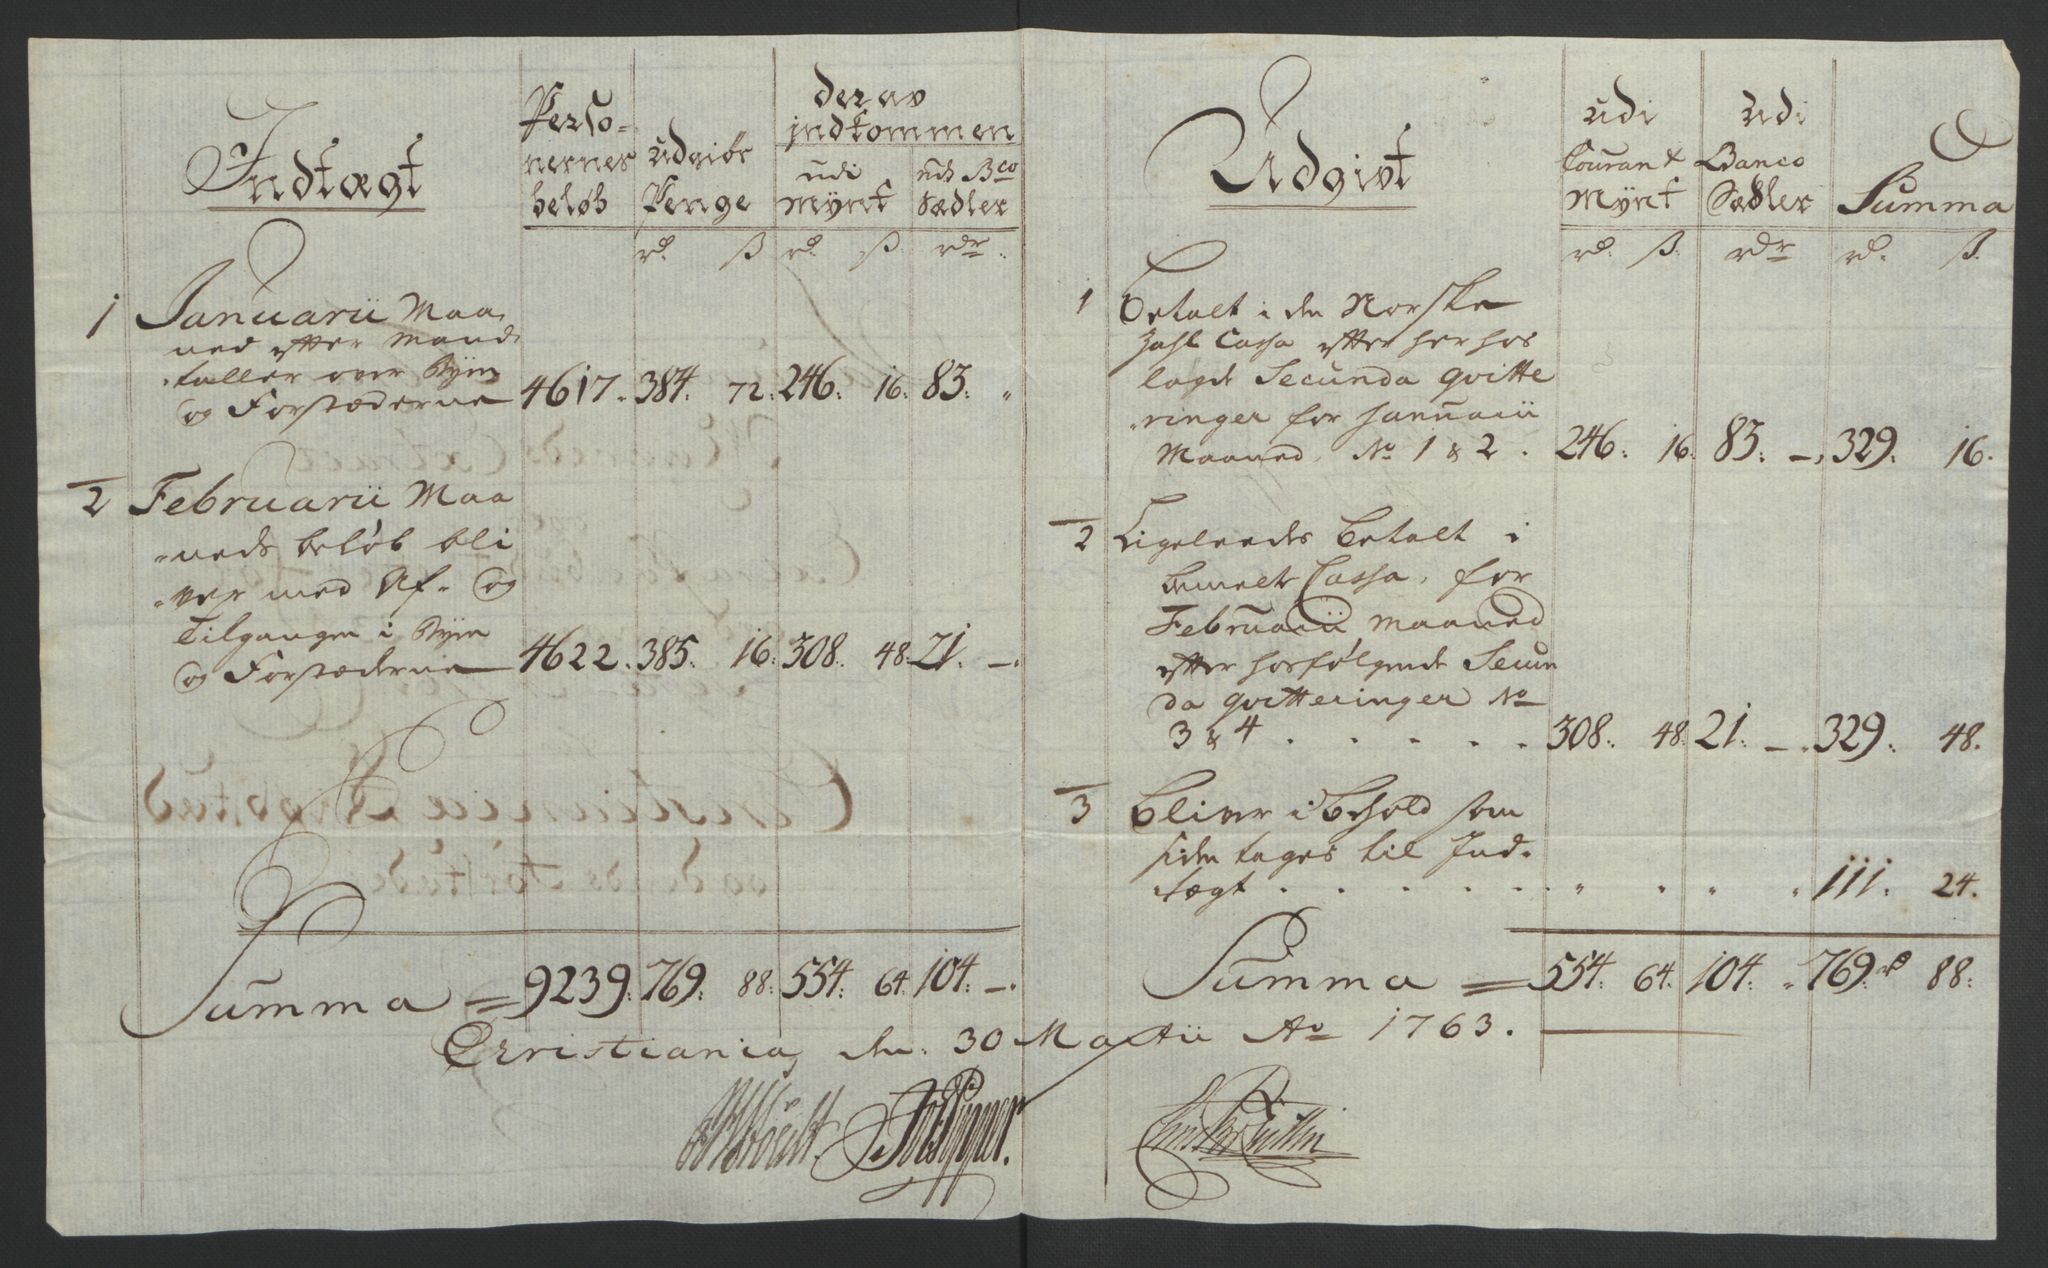 Indtægt
Perso-
nernes
beløb
udgiør
Penge
derav
indkommen
udi
Mÿnt
udi Bco
Sædler
rd. ß rd. ß rdr.
1 Januarii Maa
ned efter Mand
taller over Bÿen
og Forstæderne 4617. 384. 72. 246. 16. 83. "
2 Februarii Maa
neds beløb bli
ver med Af- og
Tilgangen i Bÿen
og Forstæderne 4622. 385. 16. 308. 48. 21. -.
Summa = 9239. 769. 88. 554. 64. 104. -.
Udgivt
udi
Courant
Mÿnt
Udi
Banco
Sædler
Summa
rd. ß. rdr rd. ß.
1 Betalt i den Norske
Zahl Cassa efter her hos
lagde Secunda qvitte
ringer for Januarii
Maaned No 1 & 2. 246. 16. 83. -. 329. 16.
2 Ligeleedes Betalt i
bemelte Cassa, for
Februarii Maaned
efter hosfølgende Secun
da qvitteringer No
3 & 4 . . . . . 308. 48. 21. -. 329. 48.
3 Bliver i Behold som
siden tages til Ind-
tægt . . . . . . " . " " 111. 24.
Summa = 554. 64. 104. " 769. rd 88.
Christiania, den 30 Martii Ao 1763.